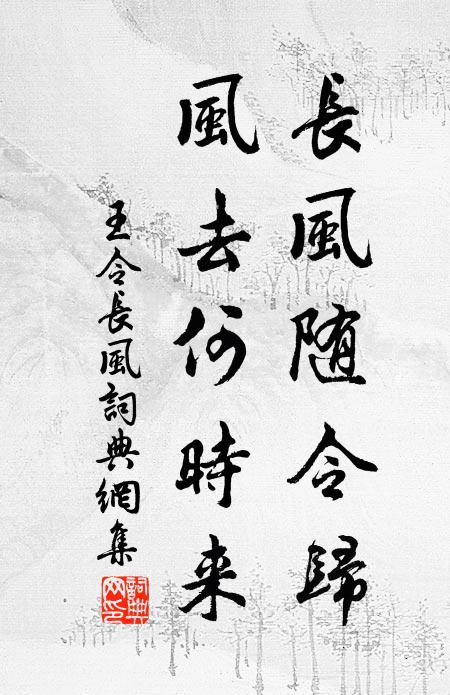 長風随令歸
風去何時来
王令長風詞典網集
詞典网印